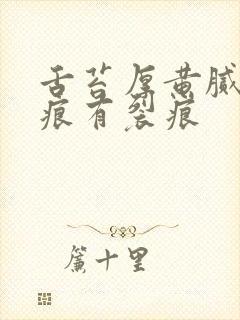 舌苔厚黄腻
痕有裂痕
簾十里